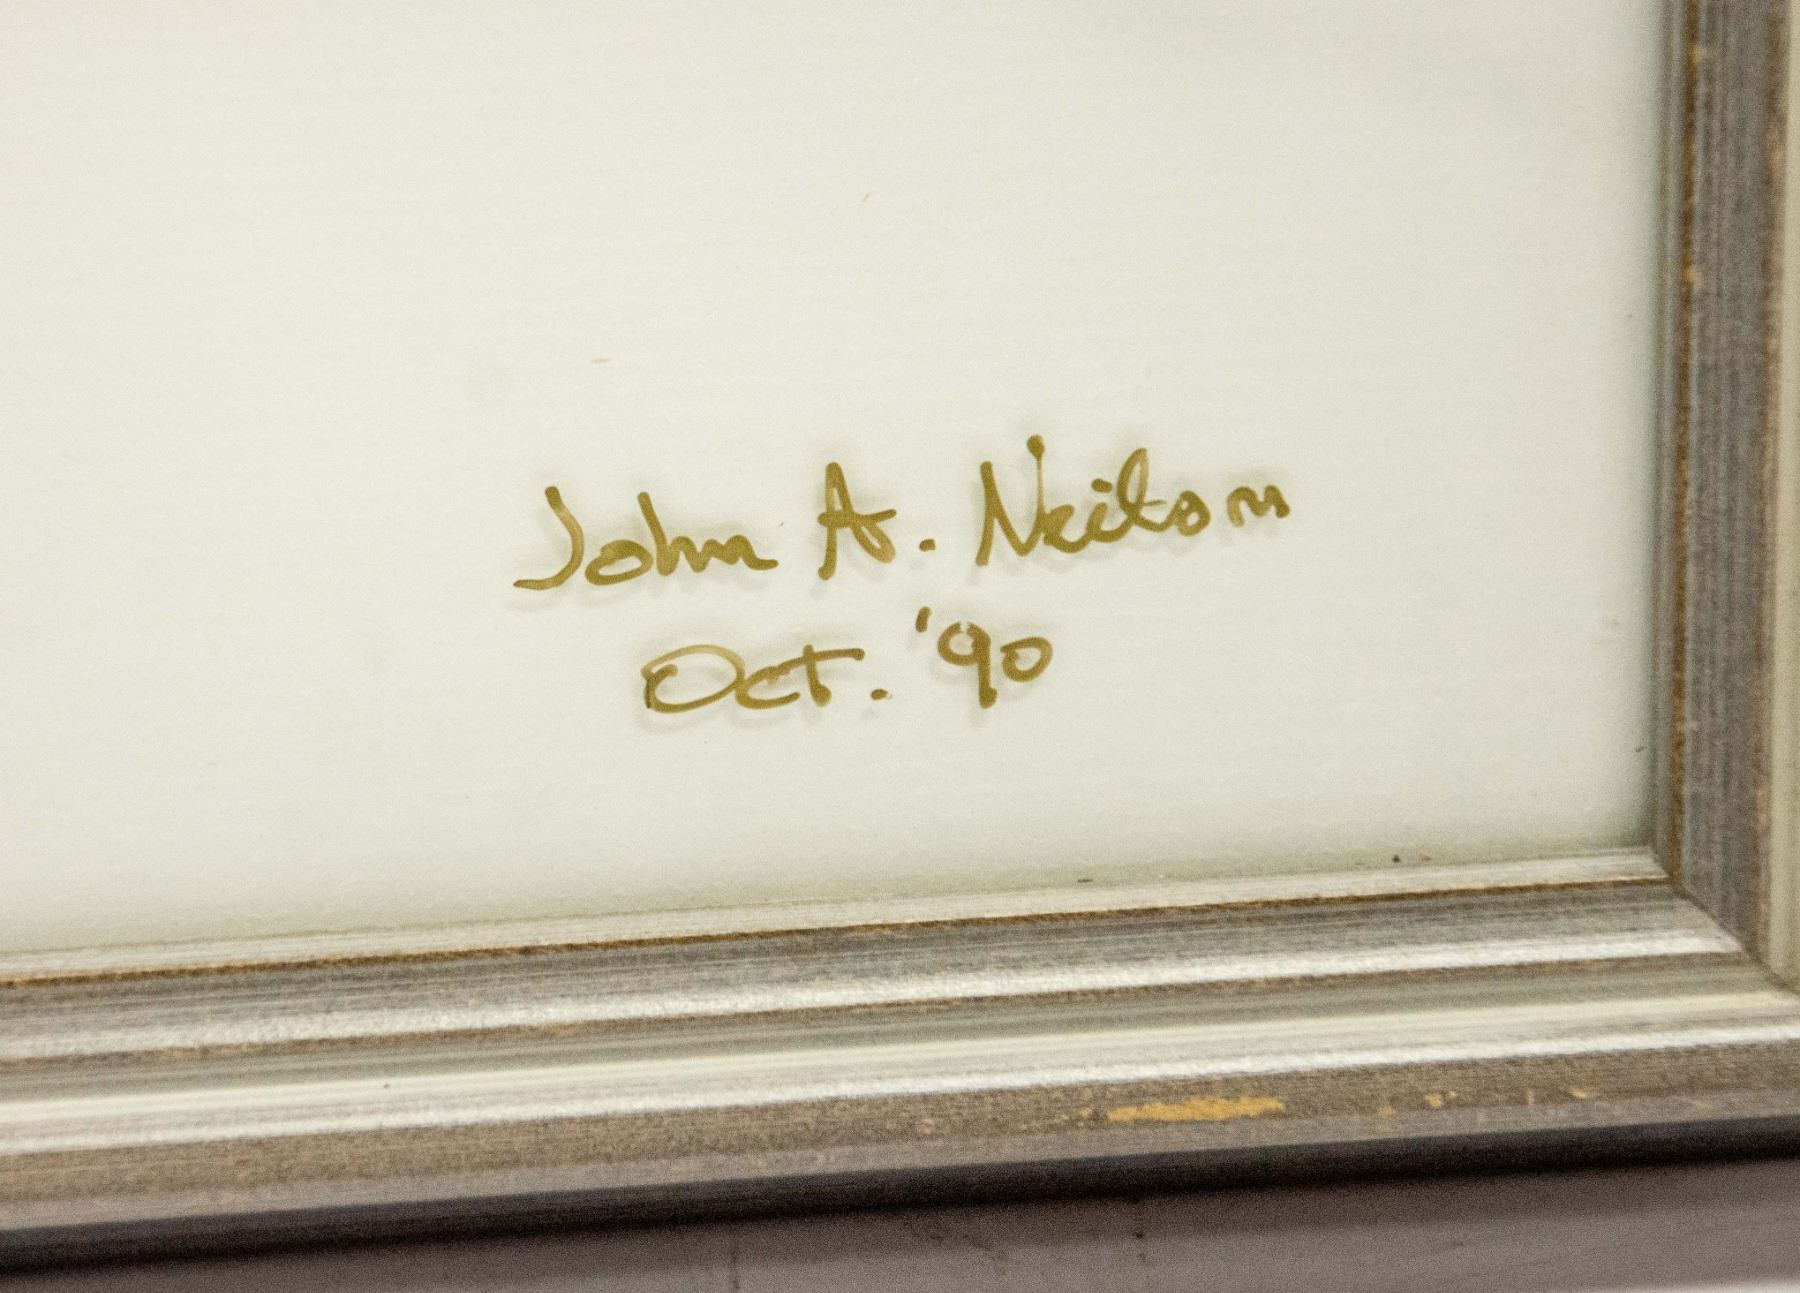 John A. Neilson
Oct. '90